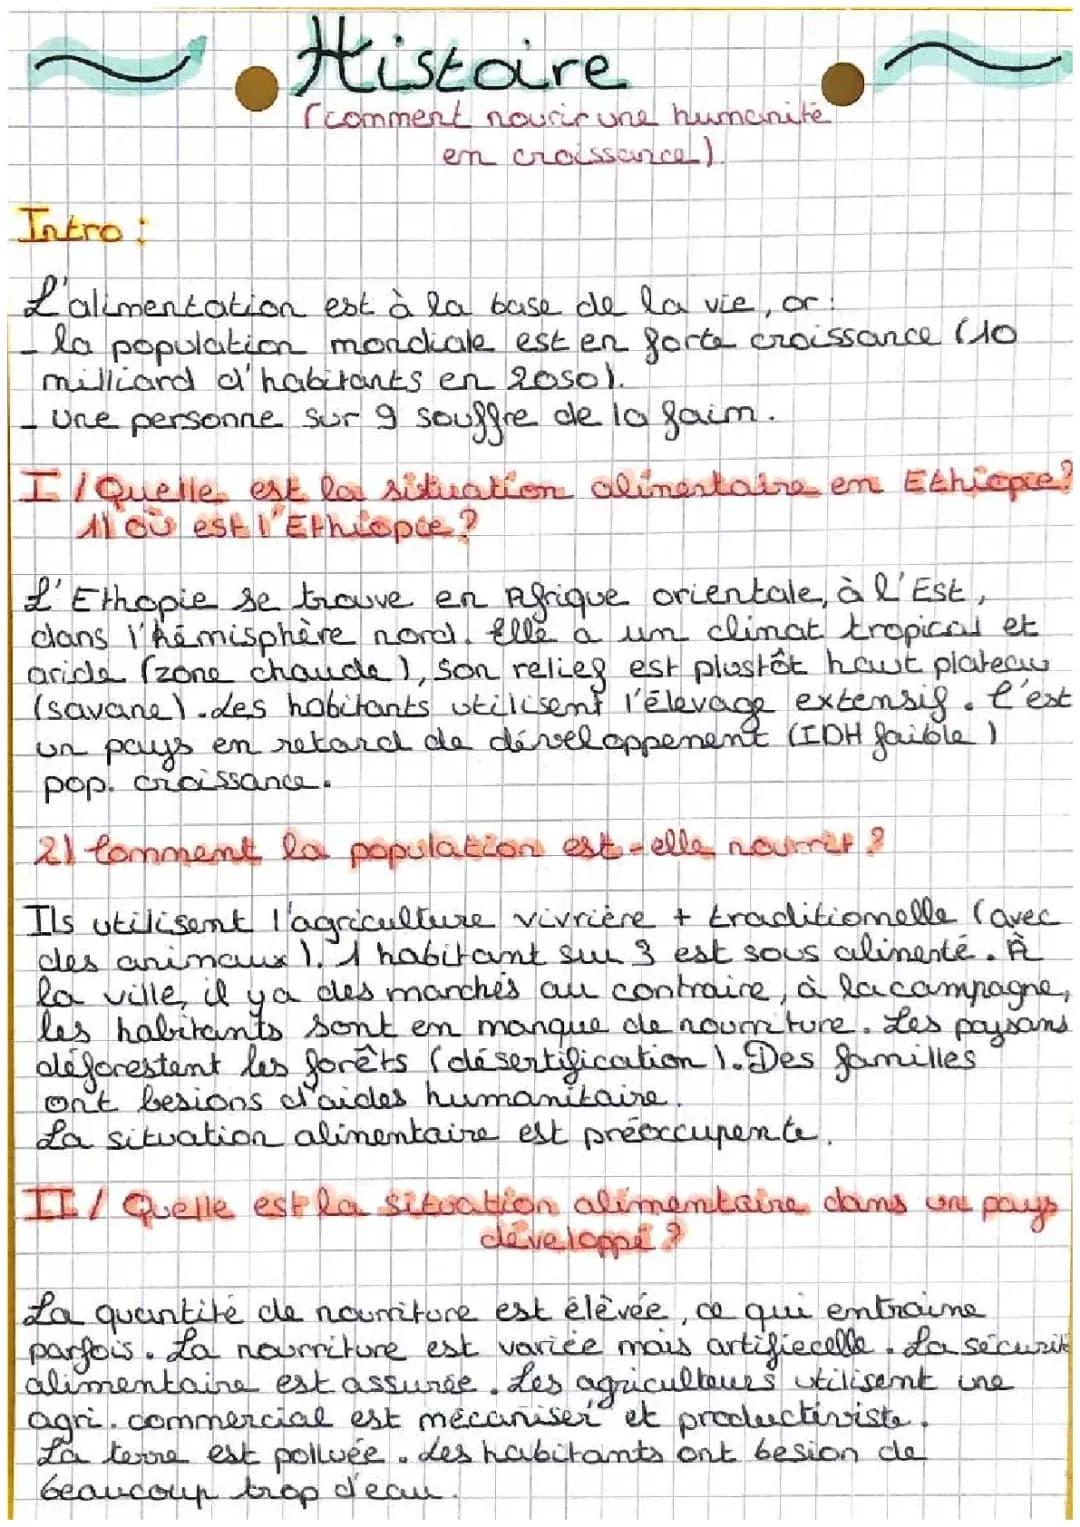 Histoire
(comment nourir une humanité
en croissance).
Intro :
L'alimentation est à la base de la vie, or :
- la population mondiale est en forte croissance (10
milliard d'habitants en 2050).
- une personne sur 9 souffre de la faim.
I / Quelle est la situation alimentaire en Ethiopie ?
1) où est l'Ethiopie ?
L'Ethopie se trouve en Afrique orientale, à l'Est,
dans l'hémisphère nord. Elle a un climat tropical et
aride (zone chaude), son relief est plustôt haut plateau
(savane). Les habitants utilisent l'élevage extensif. C'est
un pays en retard de développement (IDH faible)
pop. croissance.
2) Comment la population est-elle nourrit ?
Ils utilisent l'agriculture vivrière + traditionelle (avec
des animaux). 1 habitant sur 3 est sous alimenté. À
la ville, il y a des marchés au contraire, à la campagne,
les habitants sont en manque de nourriture. Les paysans
déforestent les forêts (désertification). Des familles
ont besions d'aides humanitaire.
La situation alimentaire est préoccupente.
II / Quelle est la situation alimentaire dans un pays
développé ?
La quantité de nourriture est élévée, ce qui entraine
parfois. La nourriture est variée mais artifiecelle. La sécurité
alimentaire est assurée. Les agriculteurs utilisent une
agri. commercial est mécaniser et productiviste.
La terre est polluée. Les habitants ont besion de
beaucoup trop d'eau.